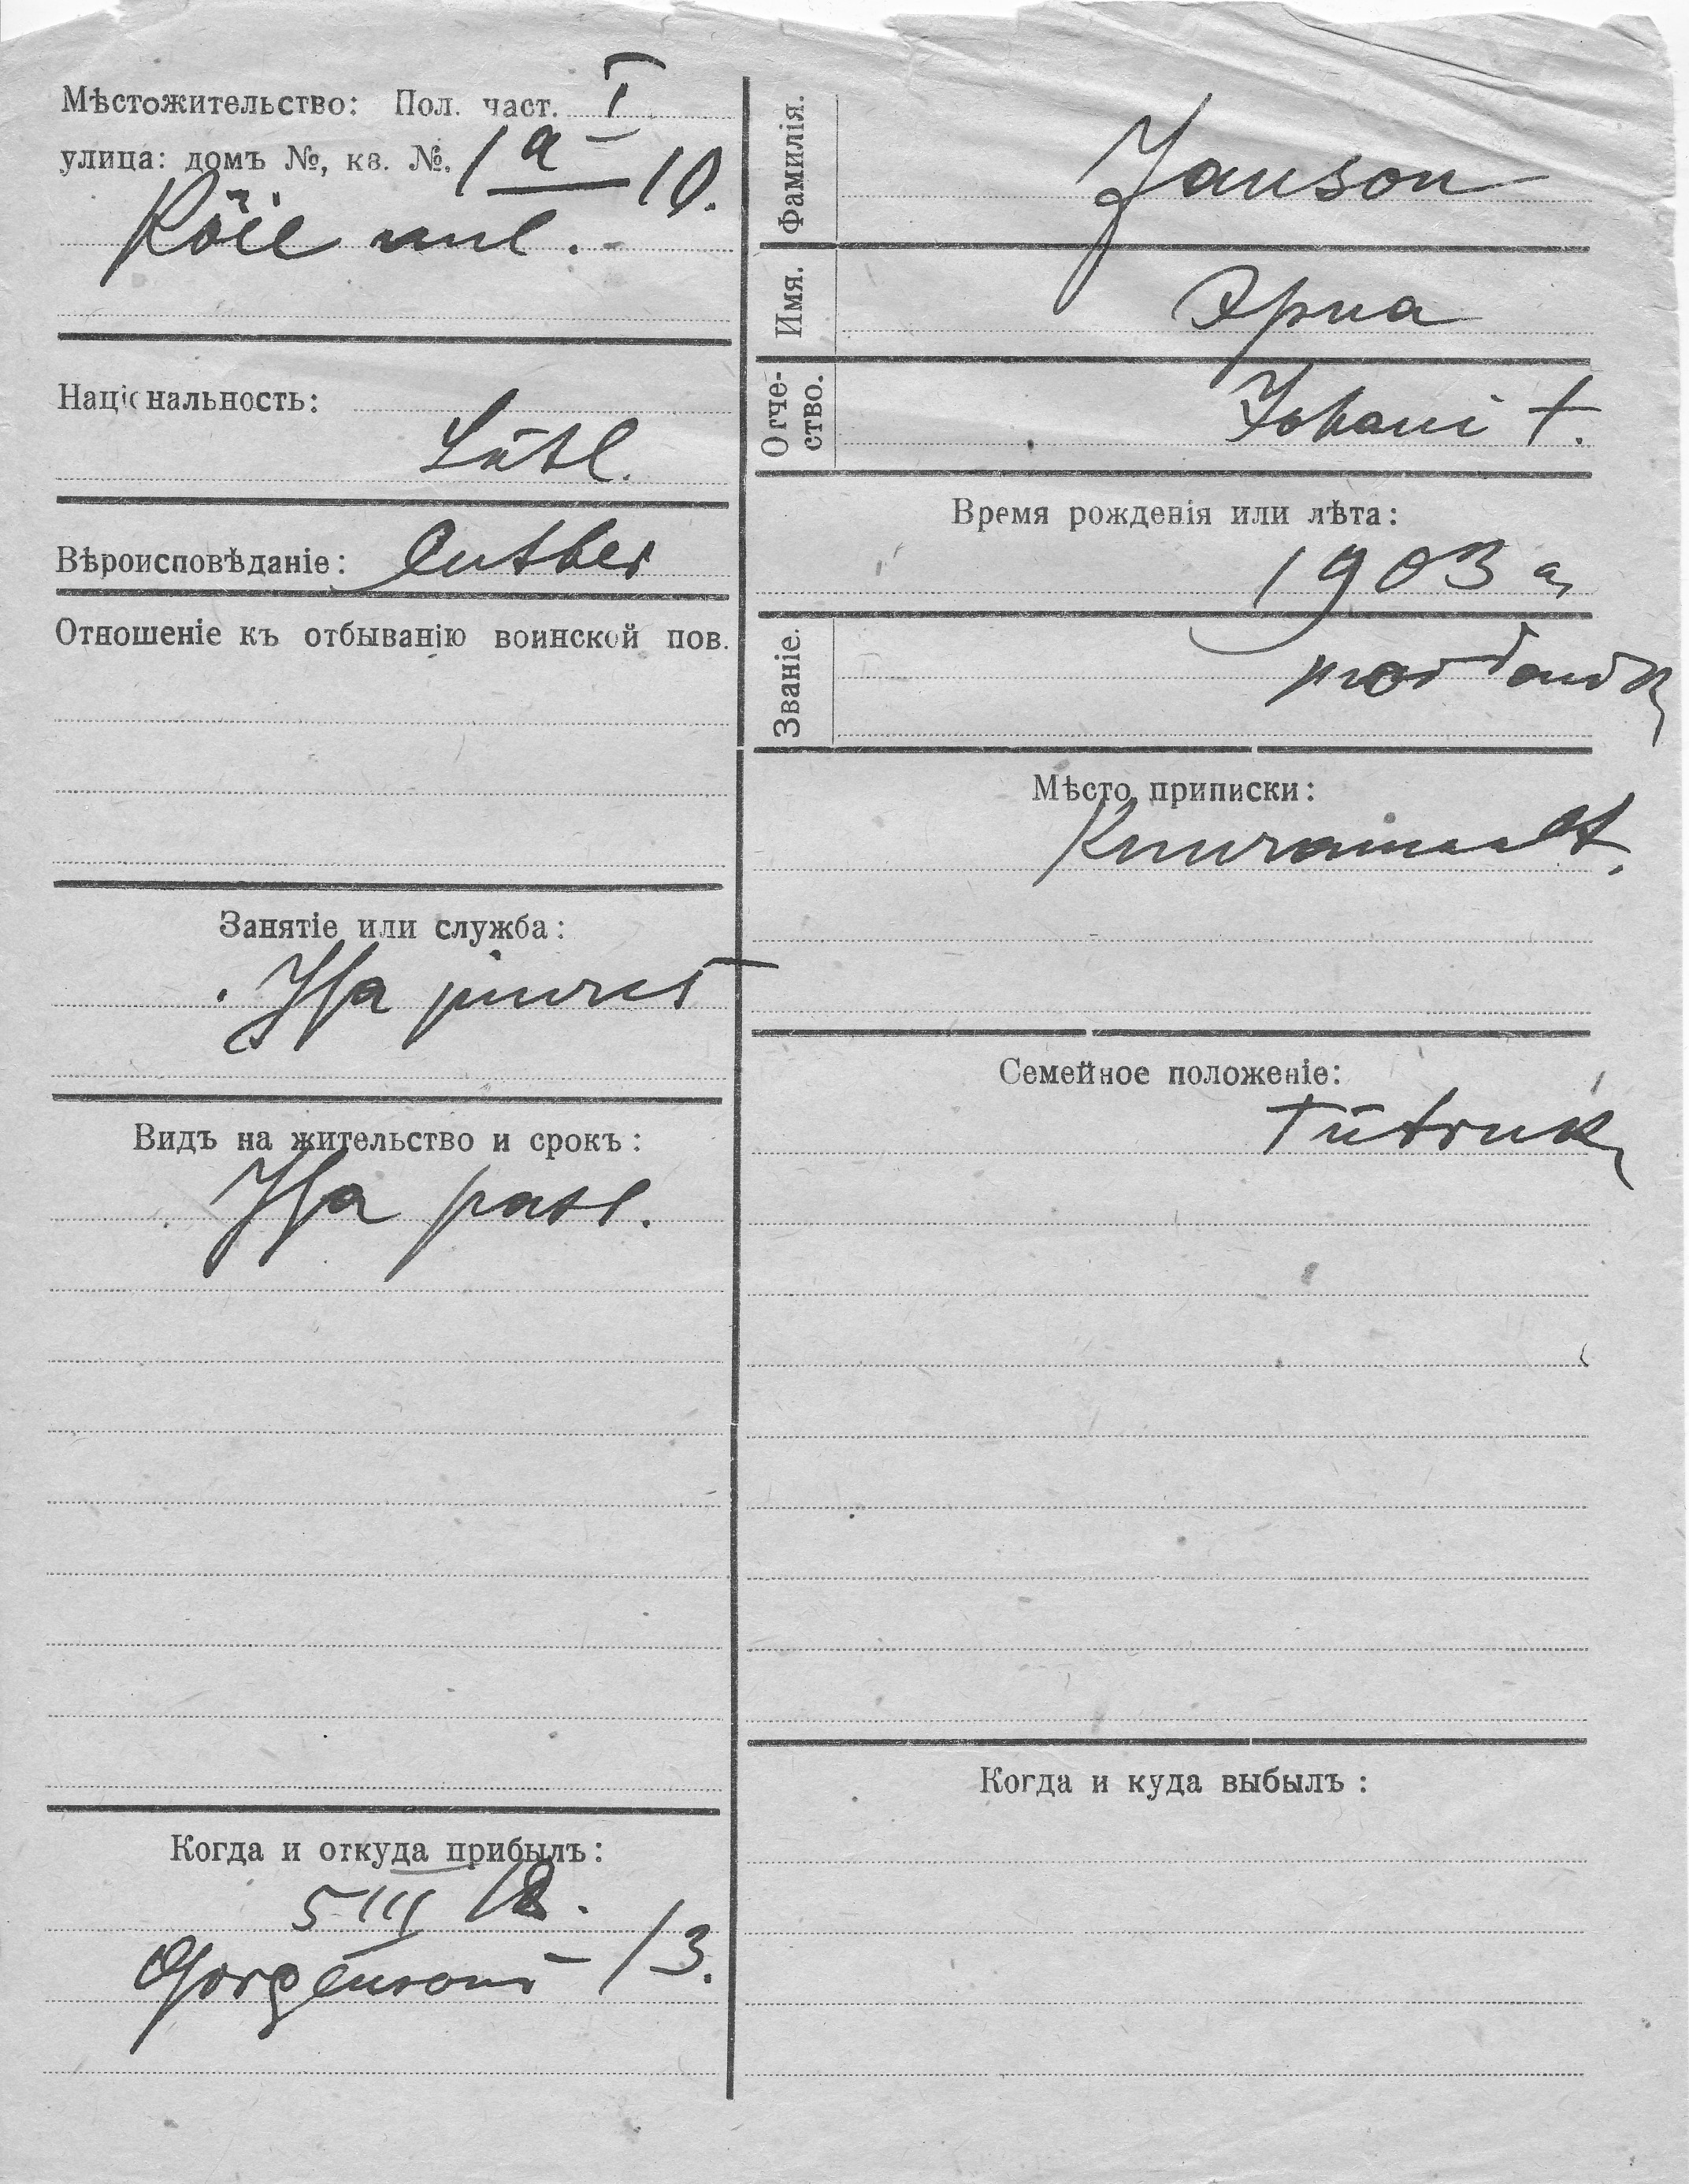 Мѣстожительство: Пол. част. I
улица: домъ №, кв. №. 1a – 10.
Köie uul.
Націснальность:
Lätl.
Вѣроисповѣданіе: Luther
Отношеніе къ отбыванію воинской пов.
Занятіе или служба:
Isa juures
Видъ на жительство и срокъ:
Isa pass.
Когда и откуда прибылъ:
5 III 18.
– 13.
Фамилія. Janson
Имя. Эрна
Отче-
ство. Johani t.
Время рожденія или лѣта:
1903 a,
Званіе.
Мѣсто приписки:
Kuuramaalt.
Семейное положеніе:
Tütruk,
Когда и куда выбылъ: